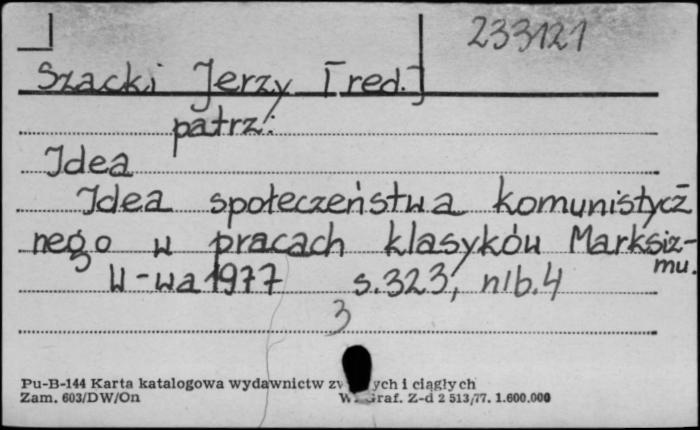 233121
Szacki Jerzy [red.]
patrz:
Idea
Idea społeczeństwa komunistycz-
nego w pracach klasyków Marksiz-
mu.
W-wa 1977 s.323, nlb.4
3
Pu-B-144 Karta katalogowa wydawnictw i ciągłych
Zam. 603/DW/On Graf. Z-d 2 513/77. 1.600.000